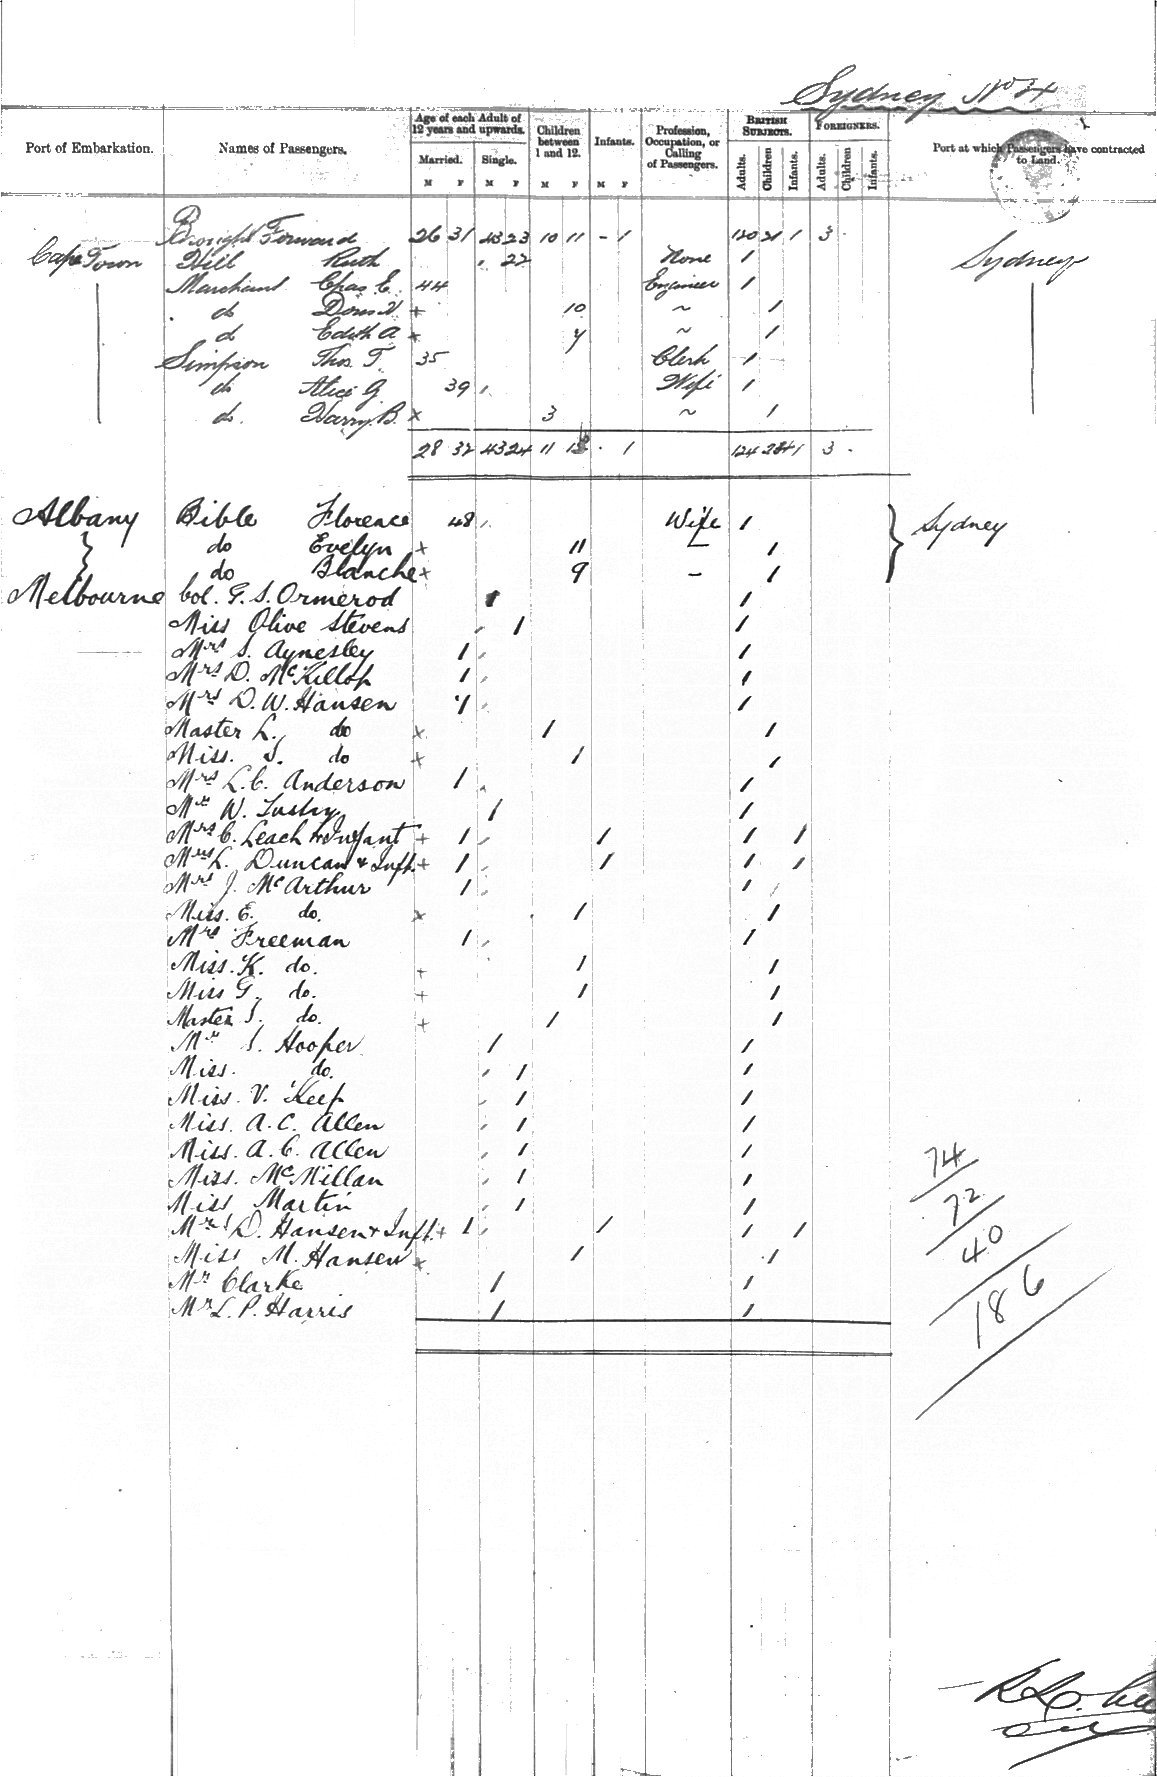 Sydney No 4
Port of Embarkation. Names of Passengers. Age of each Adult of 12 years and upwards. Married. M F Single. M F Children between 1 and 12. M F Infants. M F Profession, Occupation, or Calling of Passengers. British Subjects. Adults. Children Infants. Foreigners. Adults. Children Infants. Port at which Passengers have contracted to Land.
Brought Forward 26 31 43 23 10 11 - 1 120 21 1 3 -
Cape Town Hill Ruth 22 None 1 Sydney
Marchant Chas E. 44 Engineer 1
do Doris V + 10 ~ 1
do Edith A x 7 ~ 1
Simpson Thos. T. 35 Clerk 1
do Alice G. 39 Wife 1
do. Harry B. x 3 ~ 1
28 32 43 24 11 13 - 1 124 24 1 3 -
Albany Bible Florence 48 Wife 1 Sydney
do Evelyn + 11 - 1
do Blanche + 9 - 1
Melbourne Col. G. S. Ormerod 1 1
Miss Olive Stevens 1 1
Mrs S. Aynesley 1 1
Mrs D. McKillop 1 1
Mrs D. W. Hansen 1 1
Master L. do x 1 1
Miss. I. do x 1 1
Mrs L. C. Anderson 1 1
Mr W. 1 1
Mrs C. Leach & Infant + 1 1 1 1
Mrs L. Duncan & Inft. + 1 1 1 1
Mrs J. McArthur 1 1
Miss. E. do. x 1 1
Mrs Freeman 1 1
Miss. K. do. + 1 1
Miss G. do. + 1 1
Master S. do. + 1 1
Mr S. Hooper 1 1
Miss. do. 1 1
Miss. V. Keep 1 1
Miss. A. C. Allen 1 1
Miss. A. C. Allen 1 1
Miss. McMillan 1 1
Miss Martin 1 1
Mrs D. Hansen & Inft. + 1 1 1 1
Miss M. Hansen x 1 1
Mr Clarke 1 1
Mr L. P. Harris 1 1
74
72
40
186